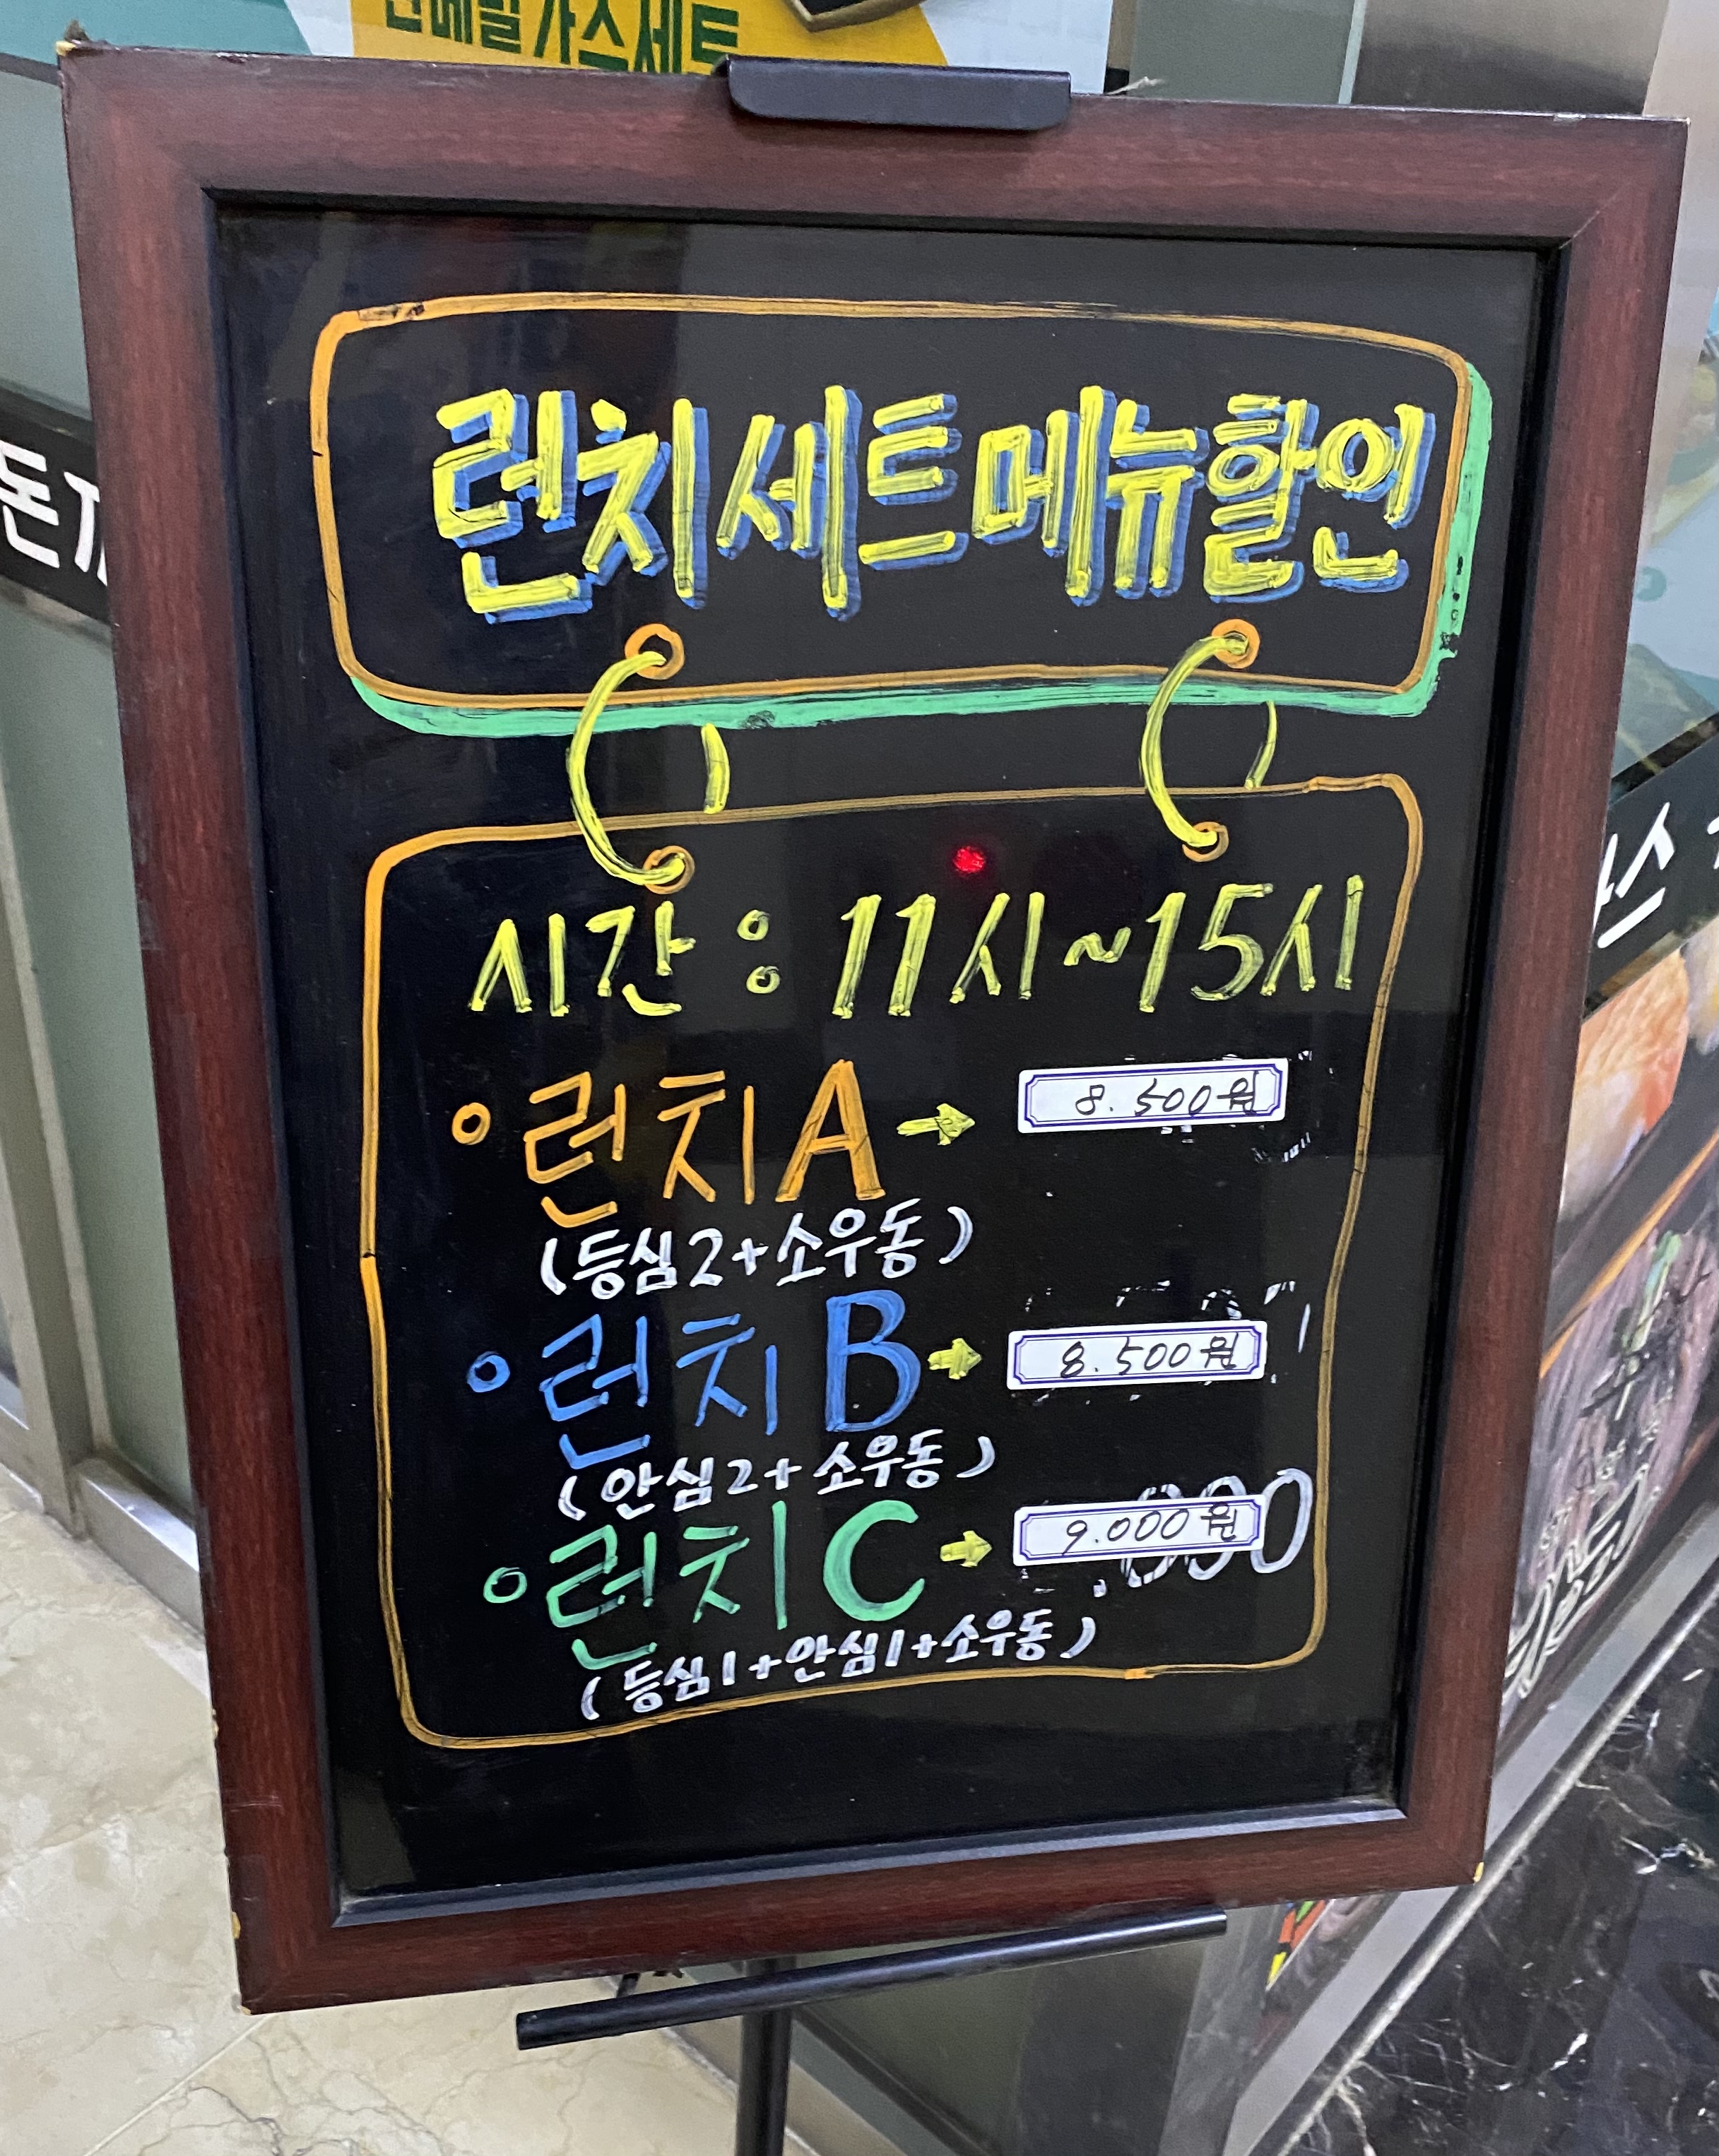 가스세트
런치세트메뉴할인
시간 : 11시~15시
런치A → 8.500원
(등심2+소우동)
런치B → 8.500원
(안심2+소우동)
런치C → 9.000원
(등심1+안심1+소우동)